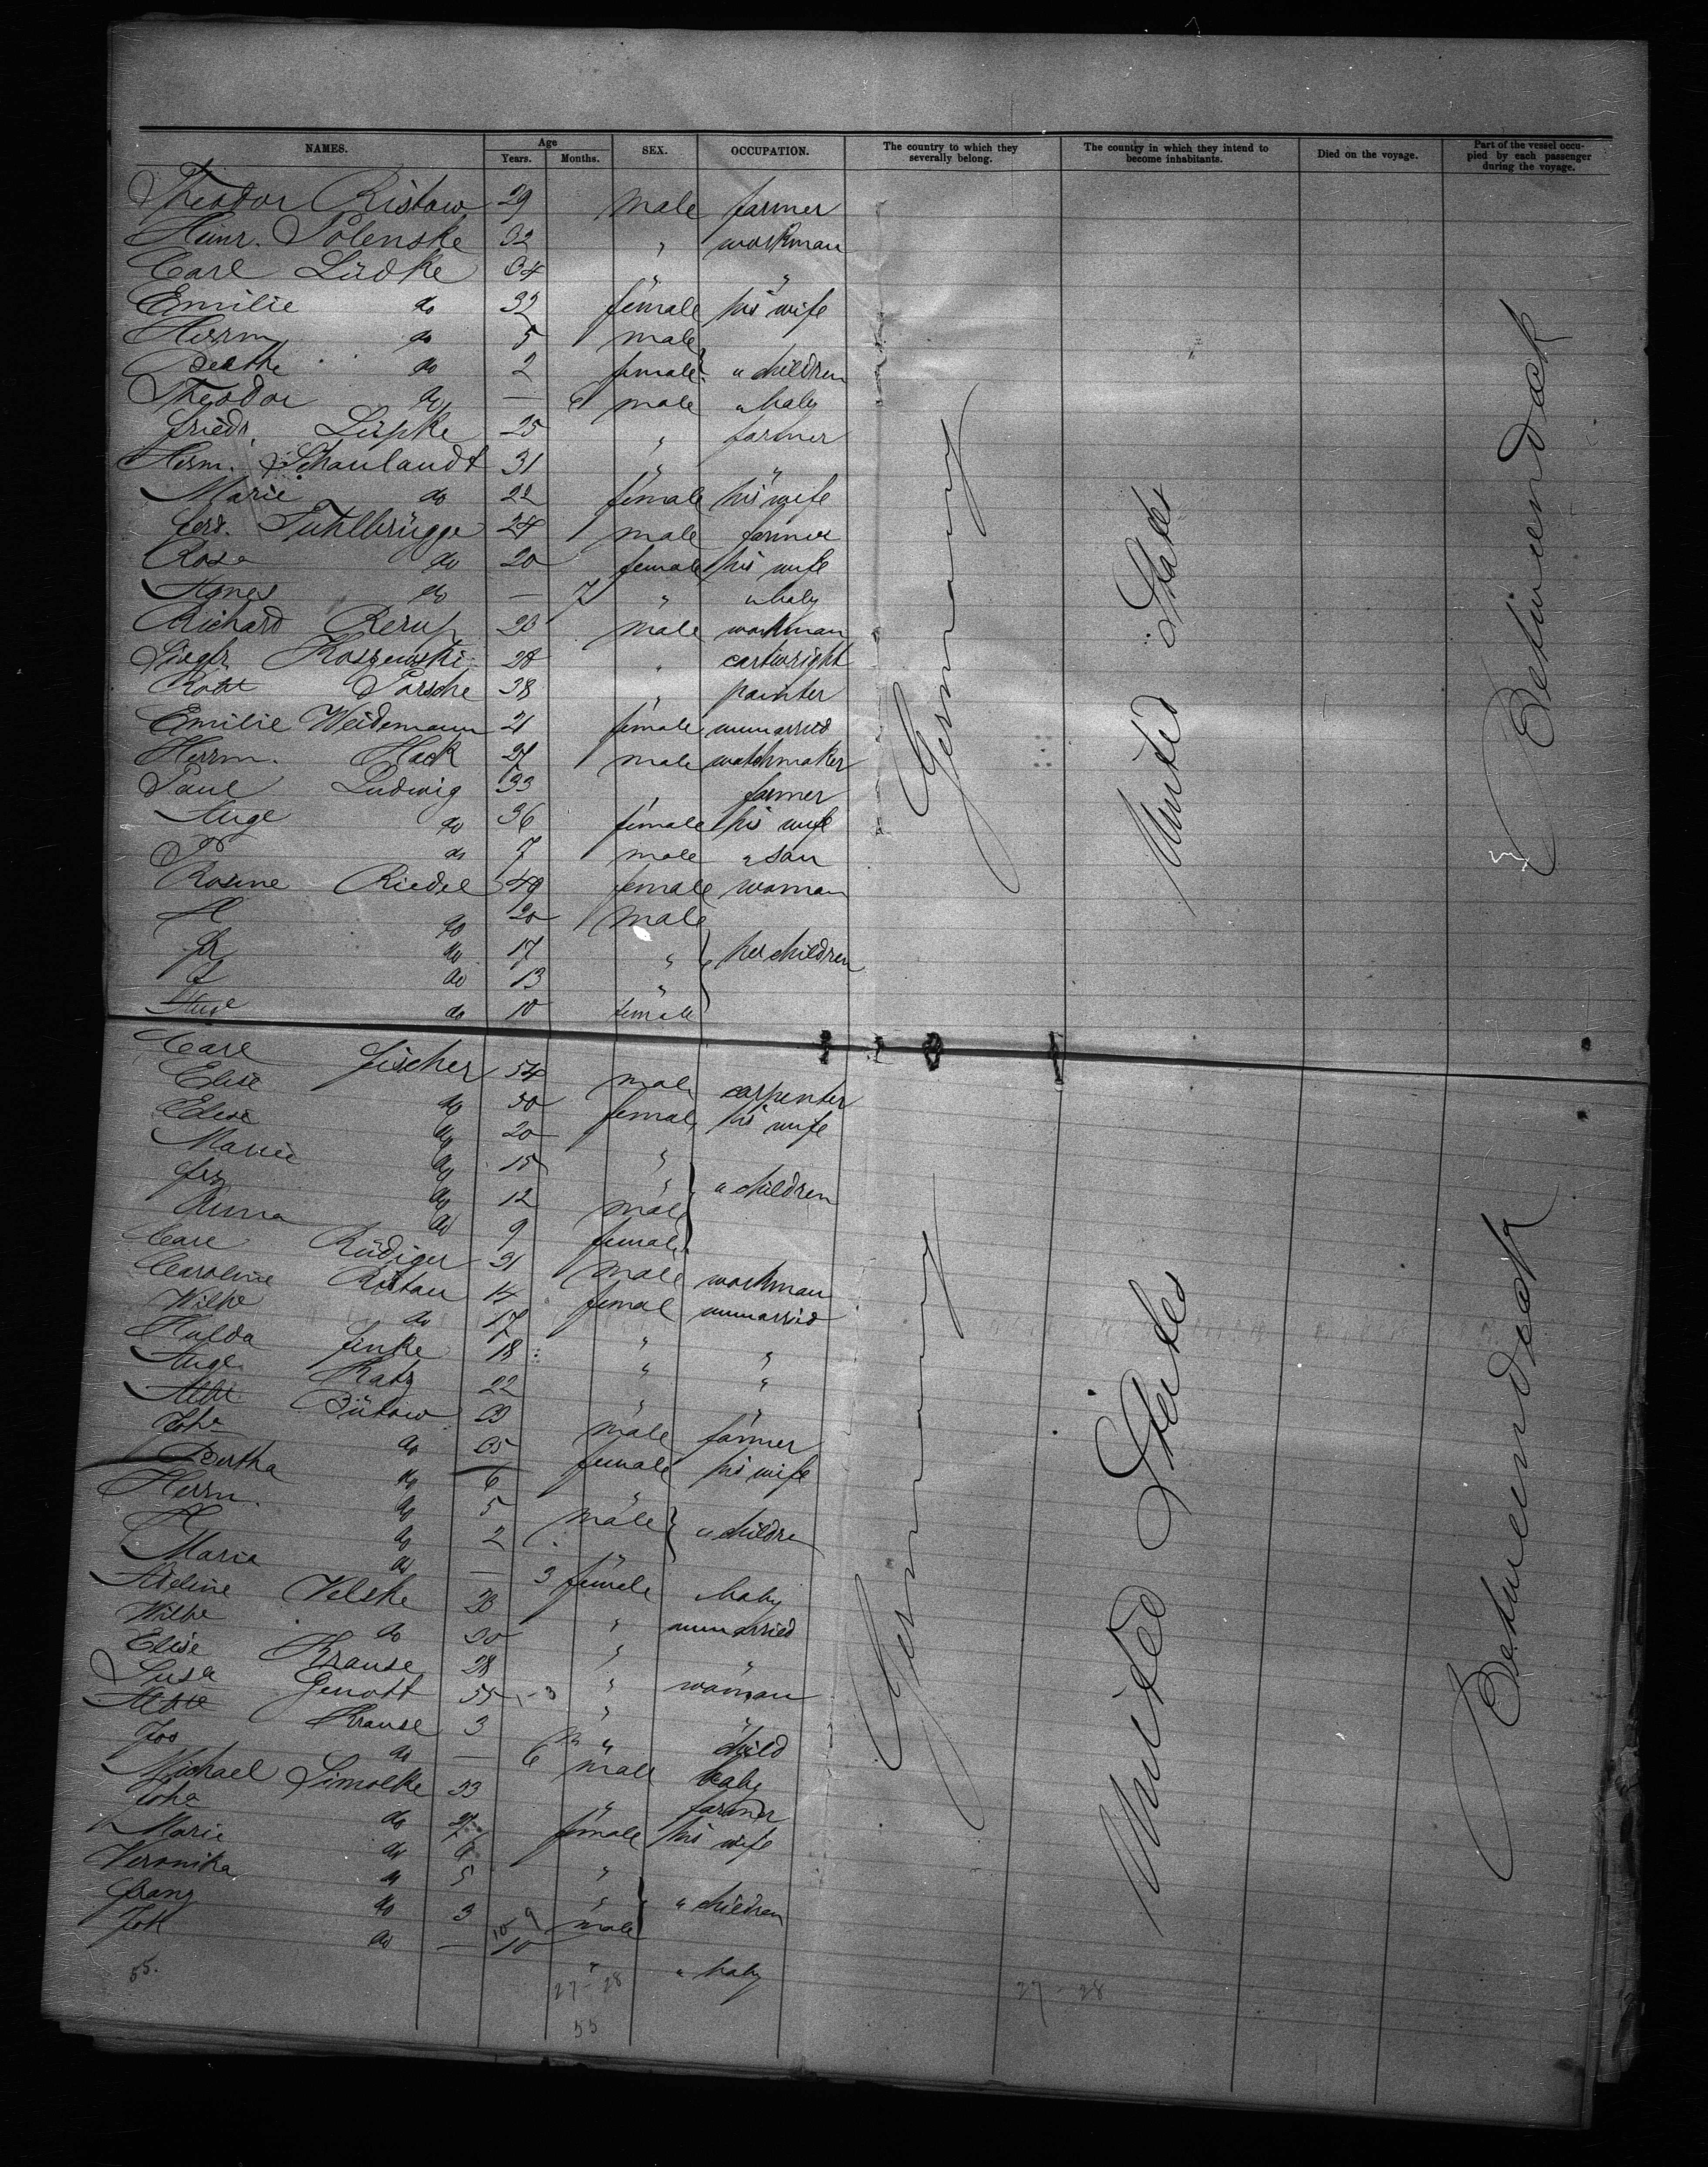 NAMES. Age Years. Months. SEX. OCCUPATION. The country to which they severally belong. The country in which they intend to become inhabitants. Died on the voyage. Part of the vessel occupied by each passenger during the voyage.
Theodor Ristow 29 male farmer
Heinr. Polenske 32 " workman
Carl Lüdke 34 " "
Emilie do 32 female his wife
Herrm do 5 male
Beathe do 2 female " children
Theodor do — 6 male " baby
Friedr. Lüpke 25 " farmer
Herm. Schaulandt 31 " "
Marie do 22 female his wife
Ferd. Tuhlbrügge 24 male farmer
Rosa do 20 female his wife
Agnes do — 7 " " baby
Richard Rerup 23 male workman
Siegfr. Koszewski 28 " cartwright
Robt Porsche 38 " painter
Emilie Weidemann 21 female unmarried
Herrm. Hack 27 male watchmaker
Paul Ludwig 33 " farmer
Auge do 36 female his wife
P do 7 male " son
Rosine Riedel 49 female woman
A do 20 male
Fr do 17 " her children
do 13 "
Auge do 10 female
Carl Fischer 54 male carpenter
Elise do 50 female his wife
Elise do 20 "
Marie do 15 " " children
Frz do 12 male
Anna do 9 female
Carl Rüdiger 31 male workman
Caroline Ristau 14 female unmarried
Wilhe do 17 " "
Hulda Finke 18 " "
Auge Katz 22 " "
Albt Bütow 33 male farmer
Johe do 35 female his wife
Bertha do 6 "
Herrm. do 5 male " children
do 2 "
Maria do — 3 female baby
Adeline Velske 23 " unmarried
Wilhe do 20 " "
Elise Krause 28 " woman
Susa Genott 55 " "
Krause 3 " child
Jos do — 6 male baby
Michael Simolke 33 " farmer
Joha do 27 female his wife
Marie do "
Veronika do 5 " " children
Franz do 3 male
Joh do — 10 " " baby
Germany United States Betweendeck
Germany United States Betweendeck
55. 27-28 27-28
55